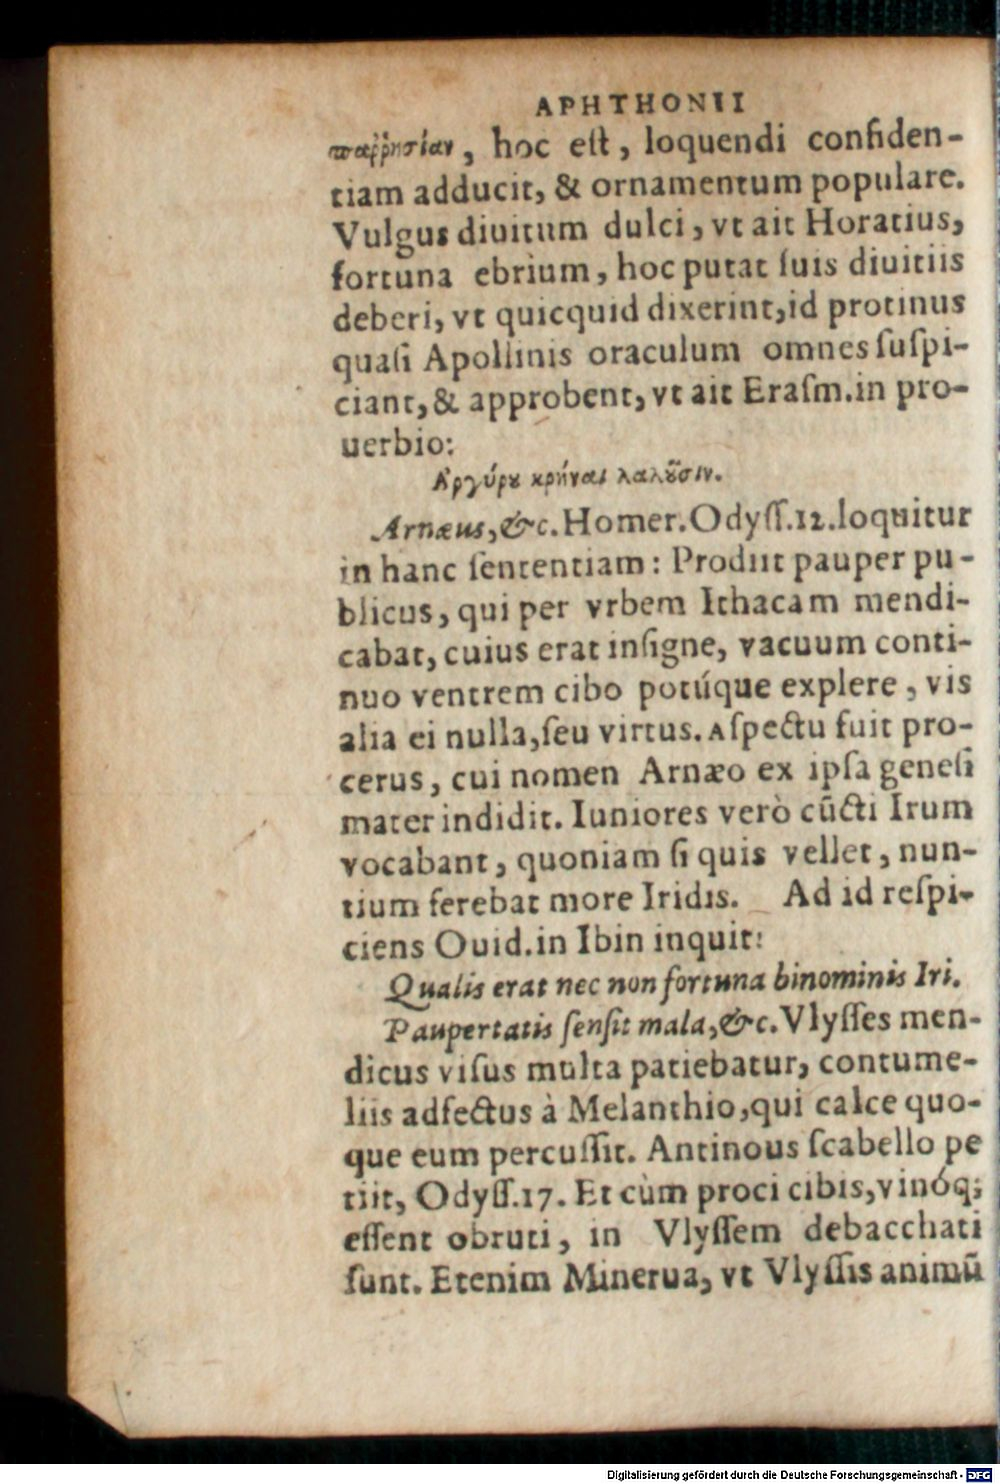 APHTHONII
παῤῥησίαν, hoc eſt, loquendi confiden-
tiam adducit, & ornamentum populare.
Vulgus diuitum dulci, vt ait Horatius,
fortuna ebrium, hoc putat ſuis diuitiis
deberi, vt quicquid dixerint, id protinus
quaſi Apollinis oraculum omnes ſuſpi-
ciant, & approbent, vt ait Eraſm. in pro-
uerbio:
Ἀργύρȣ κρήναι λαλȣ̃σιν.
Arnæus, &c. Homer. Odyſſ. 12. loquitur
in hanc ſententiam: Prodiit pauper pu-
blicus, qui per vrbem Ithacam mendi-
cabat, cuius erat inſigne, vacuum conti-
nuo ventrem cibo potúque explere, vis
alia ei nulla, ſeu virtus. Aſpectu fuit pro-
cerus, cui nomen Arnæo ex ipſa geneſi
mater indidit. Iuniores verò cũcti Irum
vocabant, quoniam ſi quis vellet, nun-
tium ferebat more Iridis. Ad id reſpi-
ciens Ouid. in Ibin inquit:
Qualis erat nec non fortuna binominis Iri.
Paupertatis ſenſit mala, &c. Vlyſſes men-
dicus viſus multa patiebatur, contume-
liis adfectus à Melanthio, qui calce quo-
que eum percuſſit. Antinous ſcabello pe
tiit, Odyſſ. 17. Et cùm proci cibis, vinóq;
eſſent obruti, in Vlyſſem debacchati
ſunt. Etenim Minerua, vt Vlyſſis animũ
Digitalisierung gefördert durch die Deutsche Forschungsgemeinschaft - DFG